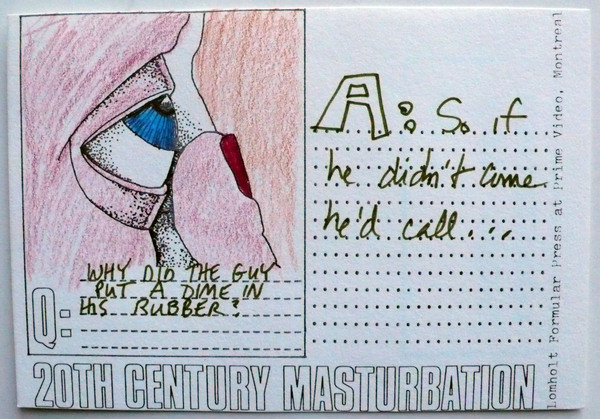 Q:
WHY DID THE GUY
PUT A DIME IN
HIS RUBBER?
A: So if
he didn't come
he'd call....
20TH CENTURY MASTURBATION
Lomholt Formular Press at Prime Video, Montreal